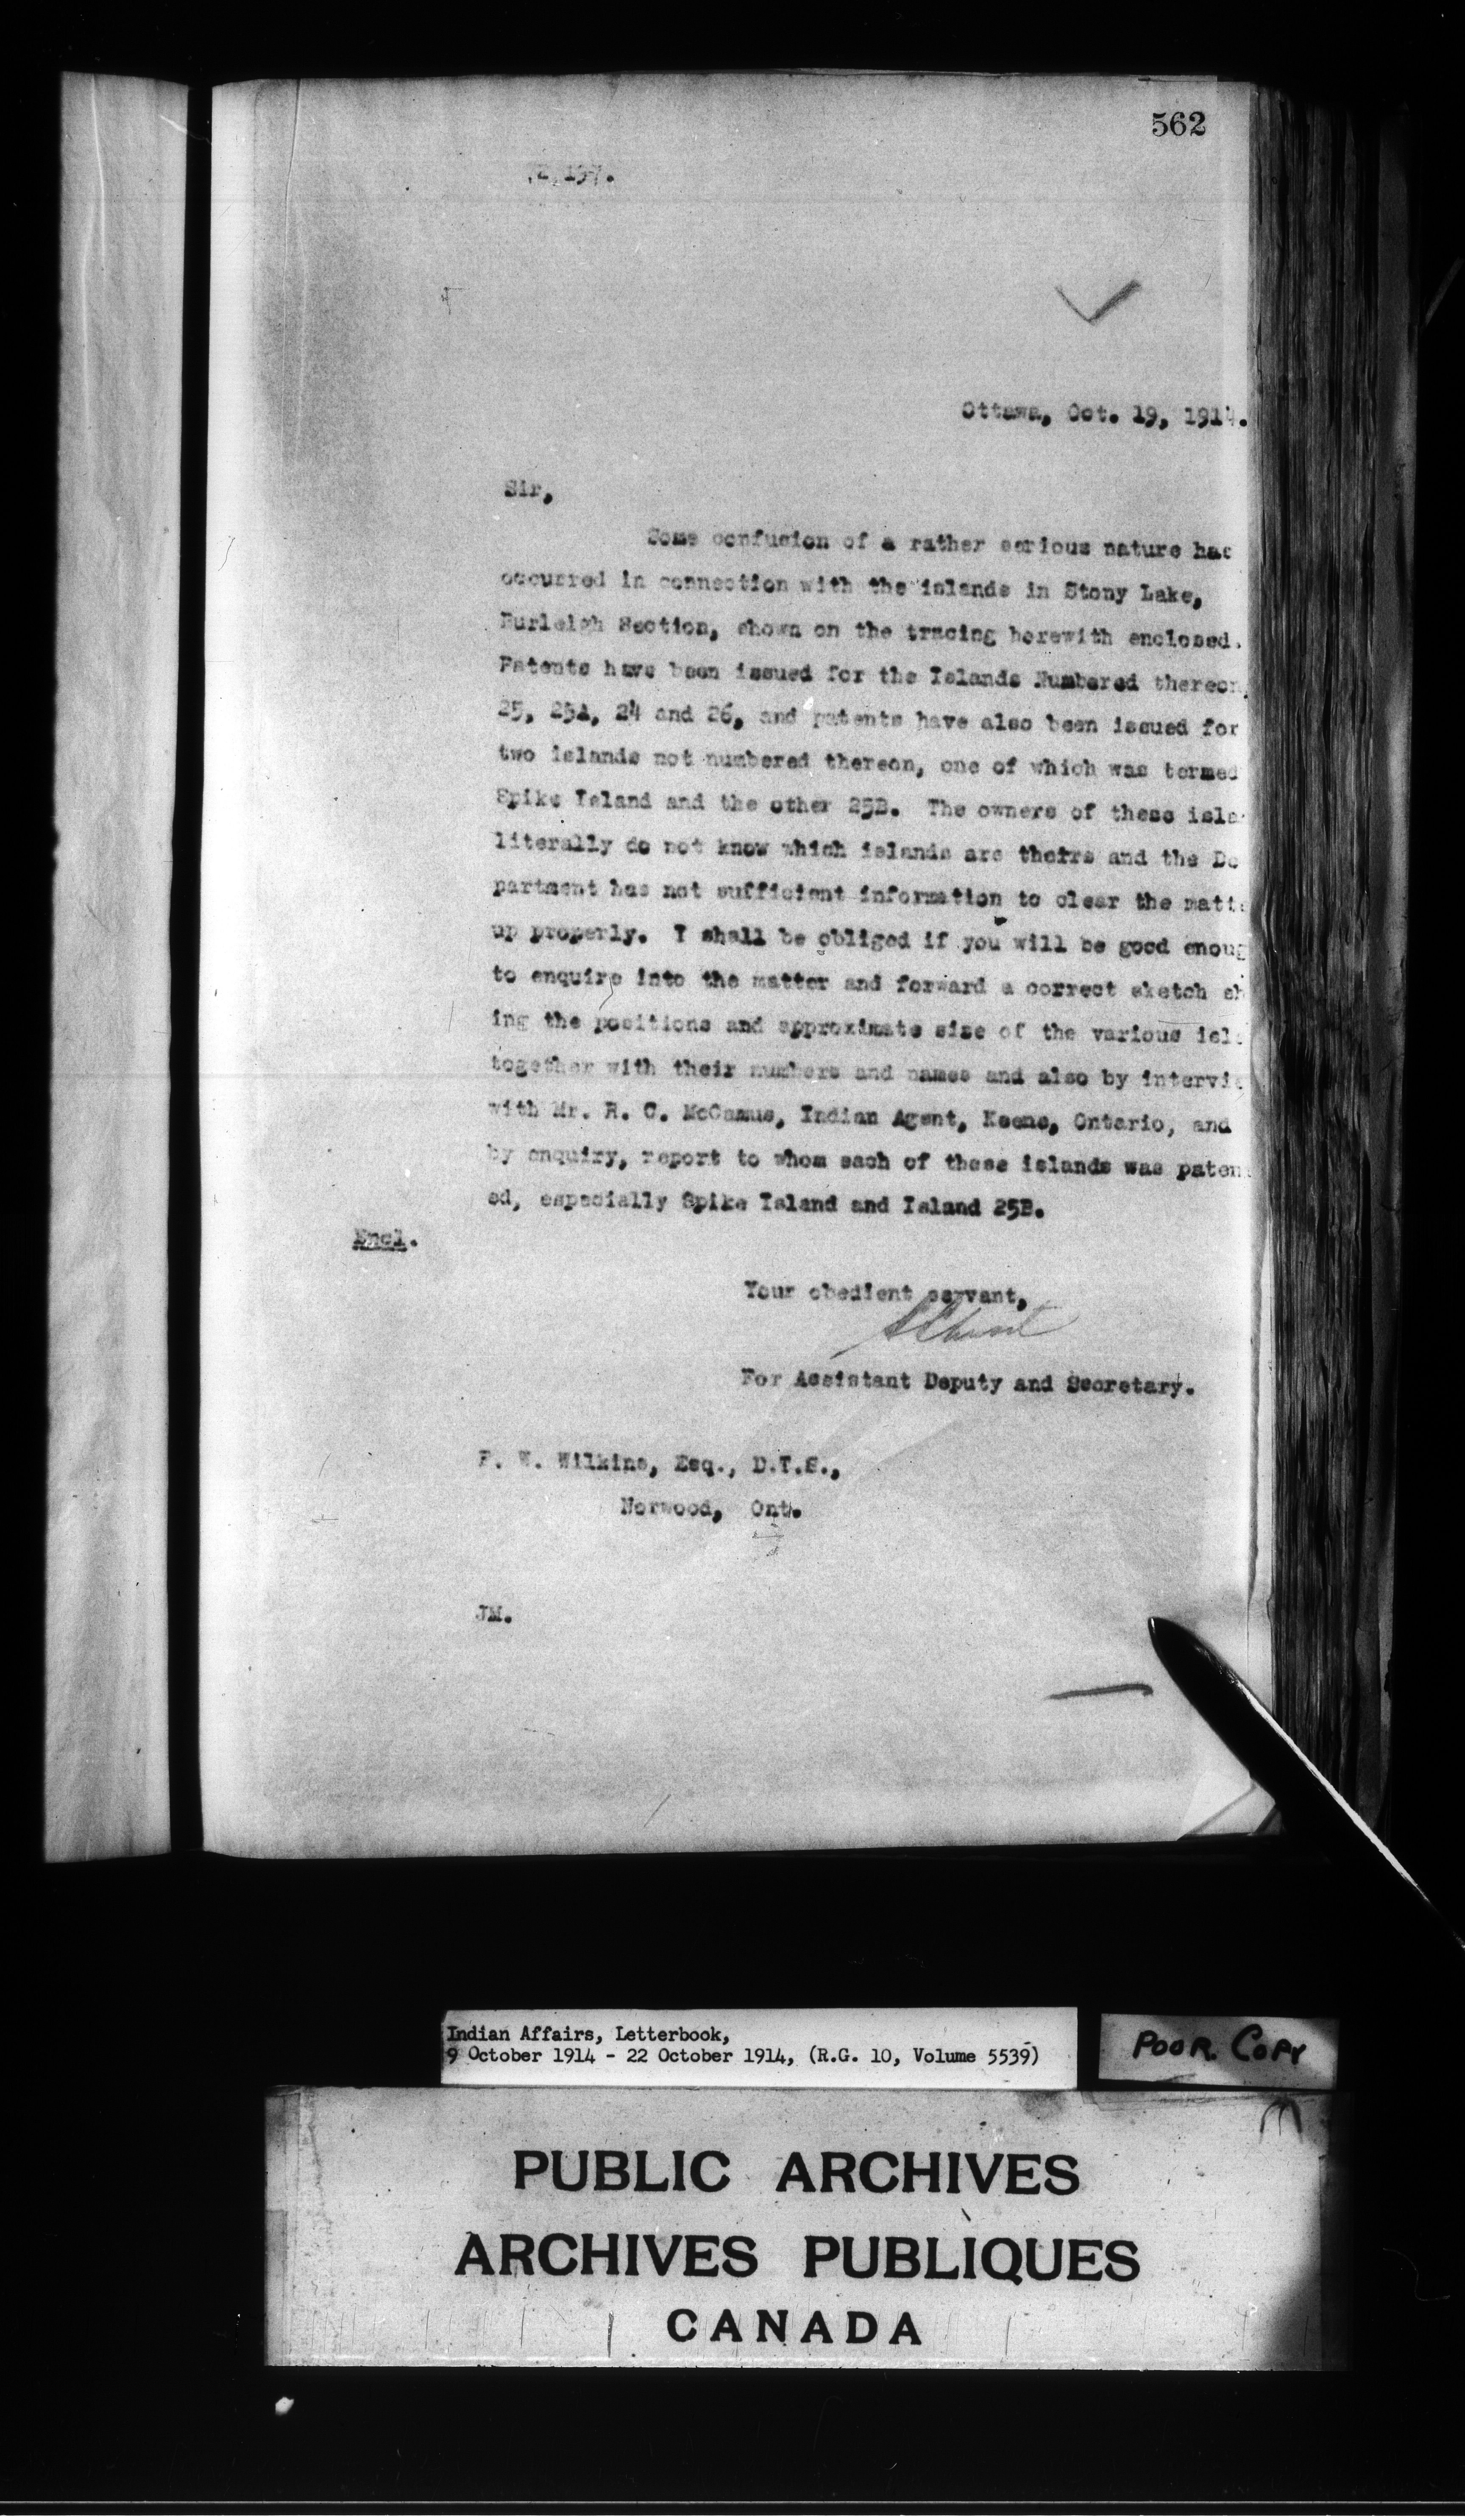 562
Ottawa, Oct. 19, 1914.
Sir,
Some confusion of a rather serious nature has
occurred in connection with the islands in Stony Lake,
Burleigh Section, shown on the tracing herewith enclosed.
Patents have been issued for the Islands Numbered thereon,
25, 25A, 24 and 26, and patents have also been issued for
two islands not numbered thereon, one of which was termed
Spike Island and the other 25B. The owners of these isla
literally do not know which islands are theirs and the De
partment has not sufficient information to clear the matte
up properly. I shall be obliged if you will be good enoug
to enquire into the matter and forward a correct sketch sh
ing the positions and approximate size of the various isla
together with their numbers and names and also by intervie
with Mr. R. C. McCamus, Indian Agent, Keene, Ontario, and
by enquiry, report to whom each of these islands was paten
ed, especially Spike Island and Island 25B.
Encl.
Your obedient servant,
For Assistant Deputy and Secretary.
F. W. Wilkins, Esq., D.T.S.,
Norwood, Ont.
JM.
Indian Affairs, Letterbook,
9 October 1914 - 22 October 1914, (R.G. 10, Volume 5539)
POOR COPY
PUBLIC ARCHIVES
ARCHIVES PUBLIQUES
CANADA